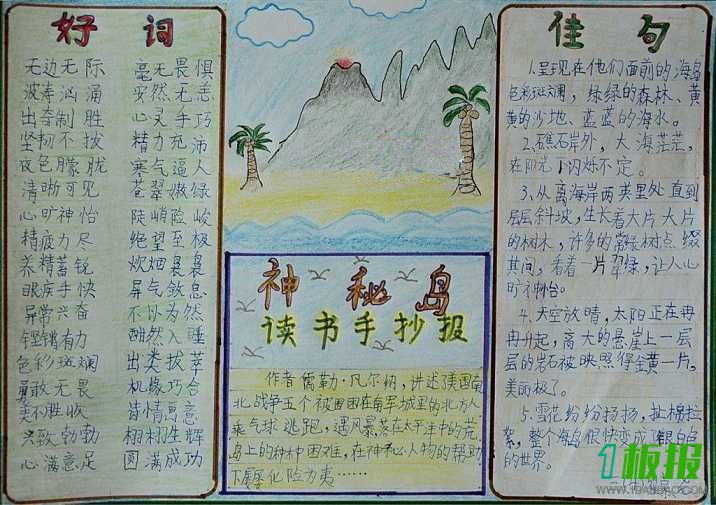 好词
无边无际 毫无畏惧
波涛汹涌 安然无恙
出奇制胜 心灵手巧
坚韧不拔 精力充沛
夜色朦胧 寒气逼人
清晰可见 苍翠嫩绿
心旷神怡 陡峭险峻
精疲力尽 绝望至极
养精蓄锐 炊烟袅袅
眼疾手快 屏气敛息
异常兴奋 不以为然
铿锵有力 酣然入睡
色彩斑斓 出类拔萃
勇敢无畏 机缘巧合
美不胜收 诗情画意
兴致勃勃 栩栩生辉
心满意足 圆满成功
神秘岛
读书手抄报
作者儒勒·凡尔纳,讲述了美国南
北战争五个被困在南军城里的北方人
乘气球逃跑,遇风暴落在太平洋中的荒
岛上的种种困难,在神秘人物的帮助
下屡屡化险为夷……
佳句
1.呈现在他们面前的海岛
色彩斑斓,绿绿的森林、黄
黄的沙地、蓝蓝的海水。
2、礁石岸外,大海茫茫,
在阳光下闪烁不定。
3、从离海岸两英里处直到
层层斜坡,生长着大片大片
的树木,许多的常绿树点缀
其间,看着一片翠绿,让人心
旷神怡。
4、天空放晴,太阳正在冉
冉升起,高大的悬崖上一层
层的岩石被映照得金黄一片,
美丽极了。
5、雪花纷纷扬扬,扯棉拉
絮,整个海岛很快变成了银白色
的世界。
1板报
WWW.1BANBAO.COM